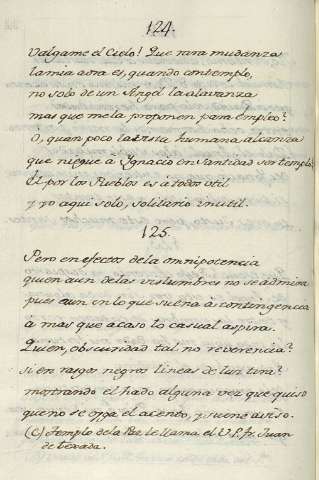 124.
Valgame el Cielo! Que rara mudanza
la mia aora es, quando contemplo,
no solo de un Angel la alavanza
mas que me la proponen para empleo?
O, quan poco la vista humana alcanza
que niegue à Ygnacio en Santidad ser templo!
Él por los Pueblos es á todos util
y yo aqui solo, solitario inutil.
125.
Pero en efectos de la omnipotencia
quien aun de las vislumbres no se admira
pues aun en lo que suena à contingencia
à mas que acaso lo casual aspira.
Quien, obscuridad tal no reverencia?
si en rasgos negros lineas de luz tira?
mostrando el hado alguna vez que quiso
que no se oyga el acento, y suene aviso.
(c) Templo de la Paz le llama el V. P. fr. Juan
de texada.